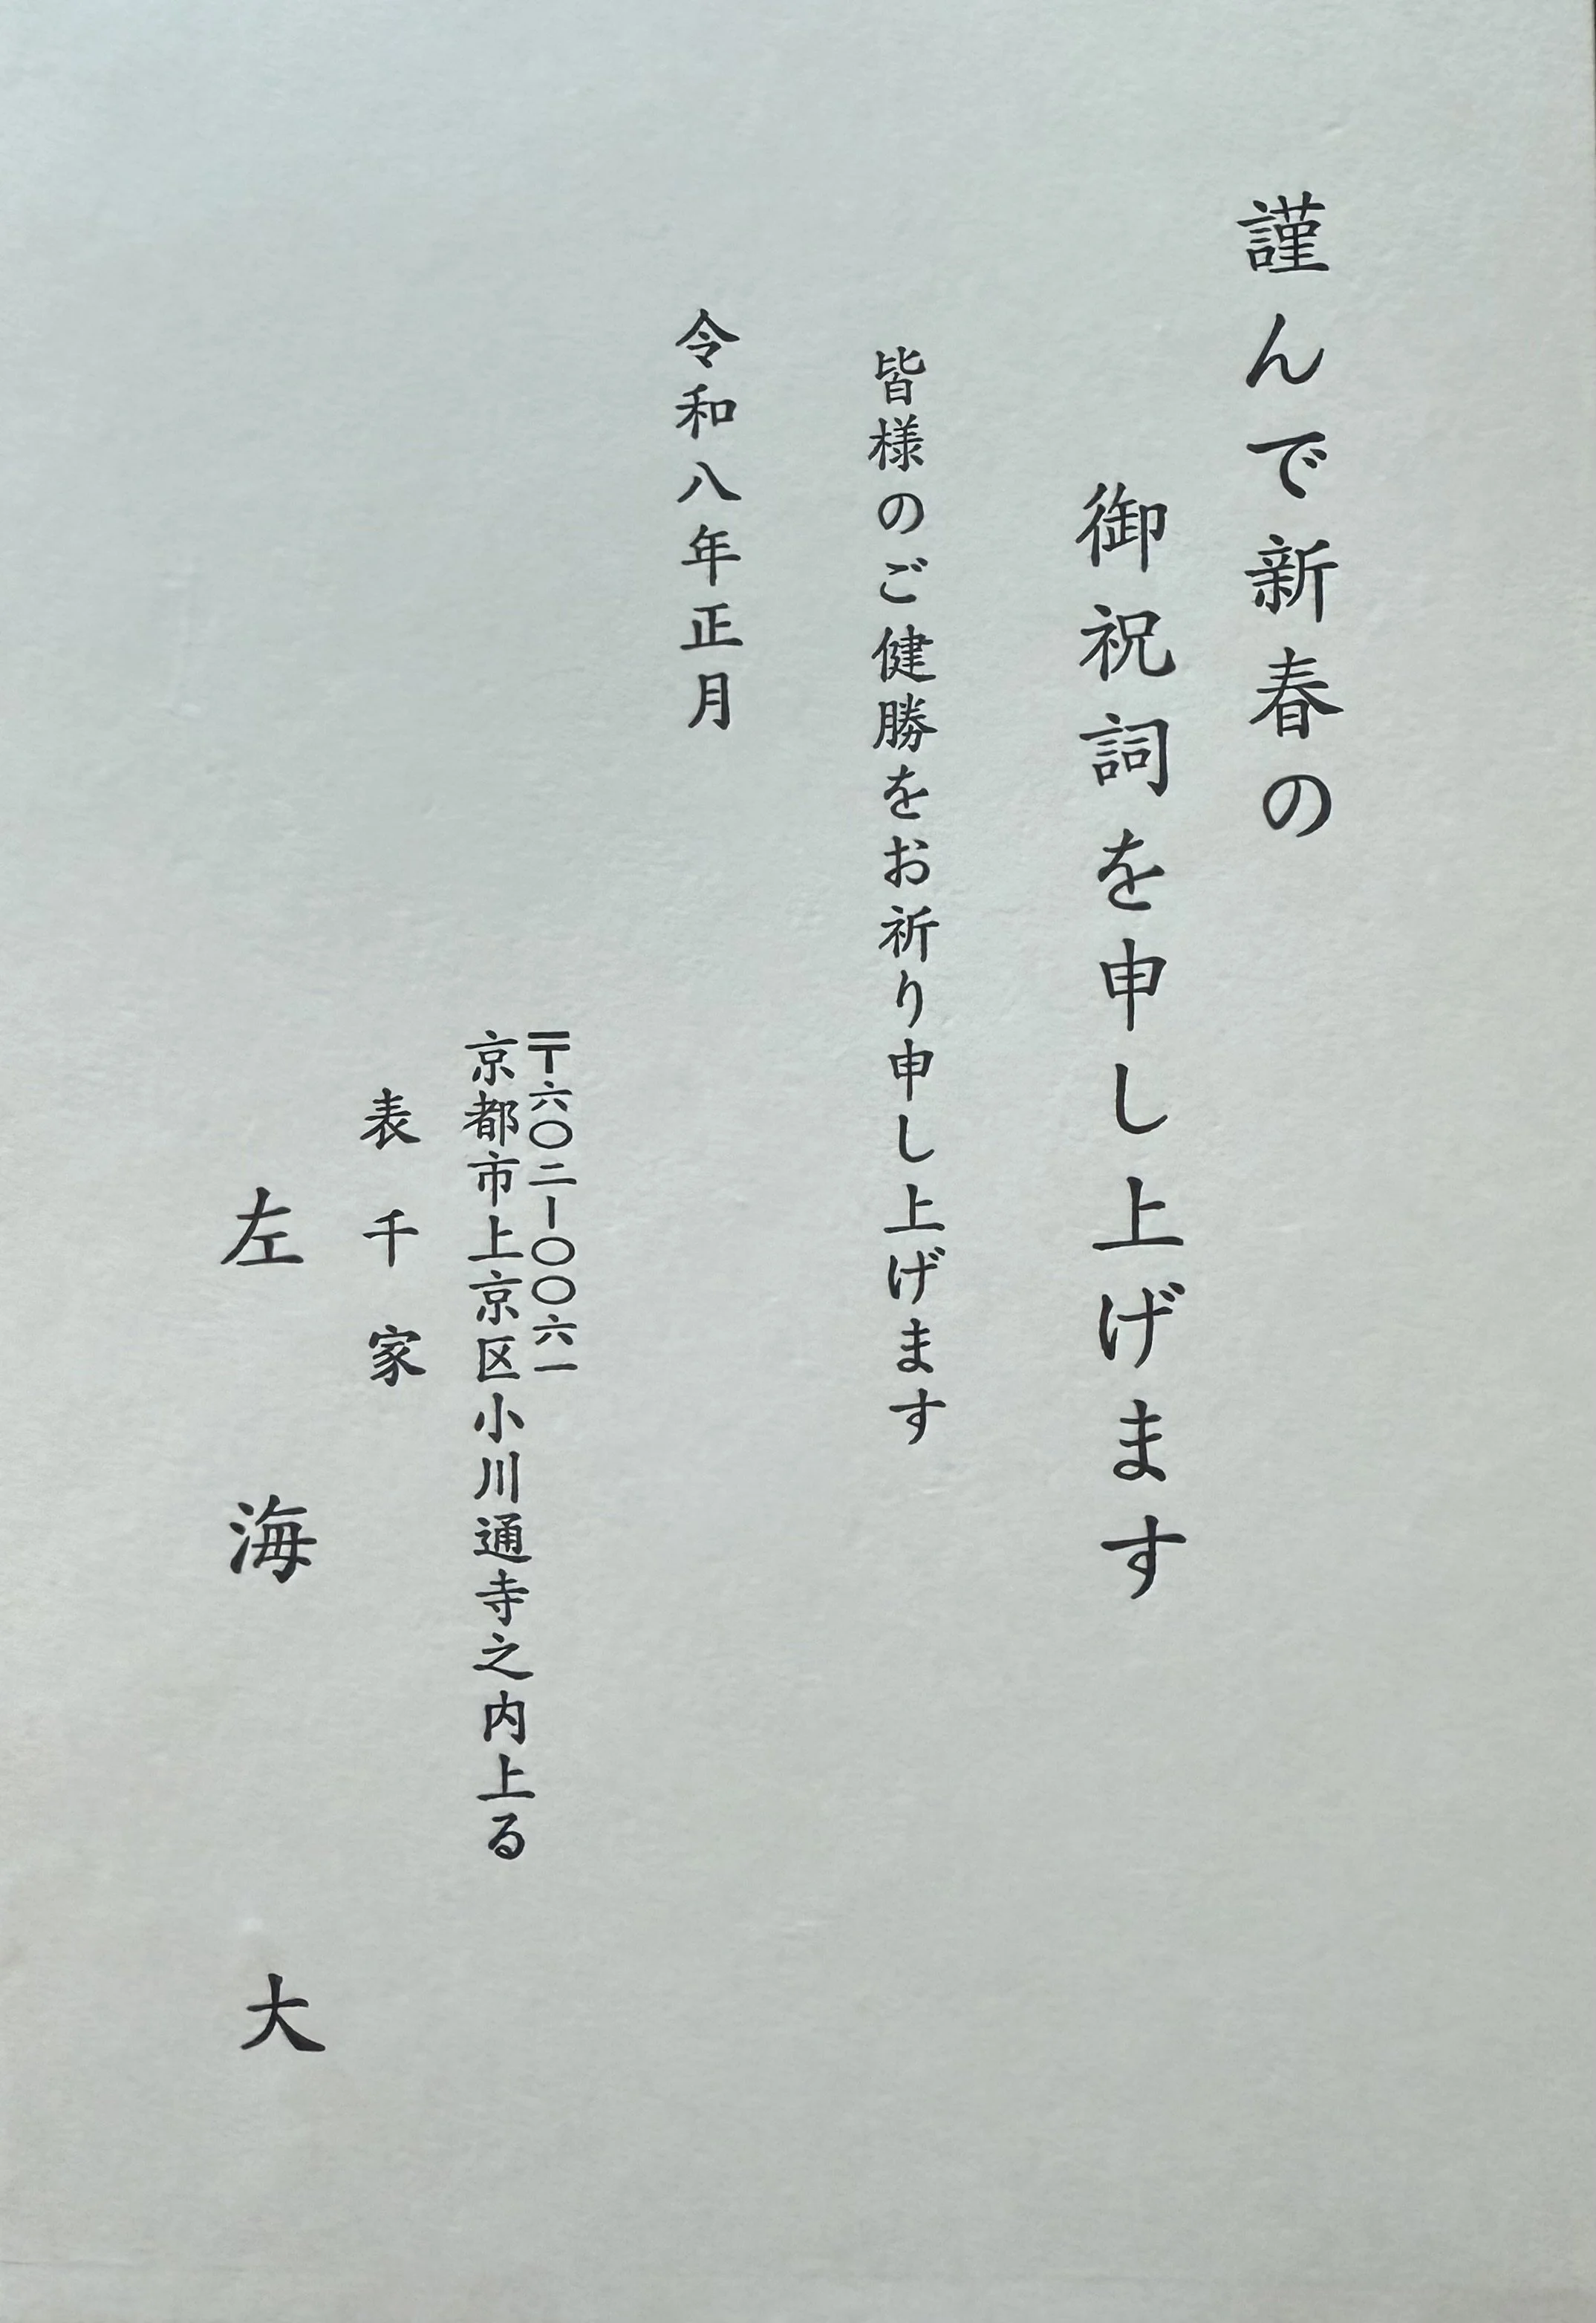 謹んで新春の
御祝詞を申し上げます
皆様のご健勝をお祈り申し上げます
令和八年正月
〒六〇二-〇〇六一
京都市上京区小川通寺之内上る
表千家
左海大